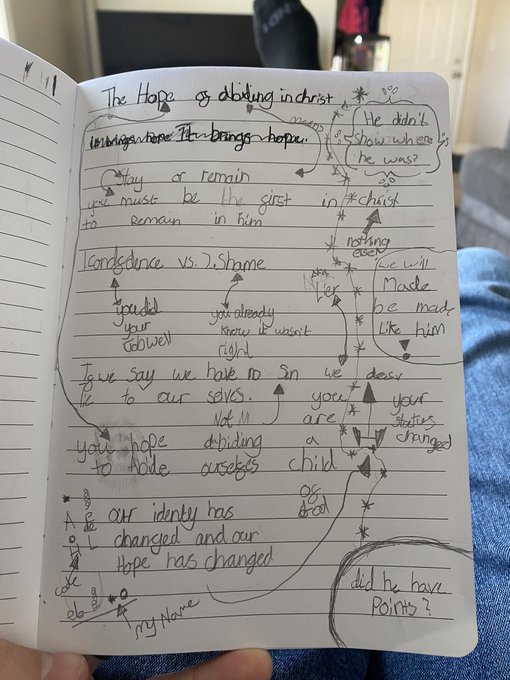 The Hope of abiding in christ
means
It brings hope.
He didn't
show where
he was?
Stay or remain
you must be the first in *christ
to remain in him
nothing
else
1 confedence vs. 2. Shame
Lier
you did
your
Job well
you already
know it wasn't
right
we will
Made
be made
Like him
If we say we have no Sin we
lie to our selves.
Not
you
are
a
child
of
God
your
status
changed
you hope abiding
to Abide ourselfes
our identy has
changed and our
Hope has changed
code
my Name
did he have
Points?